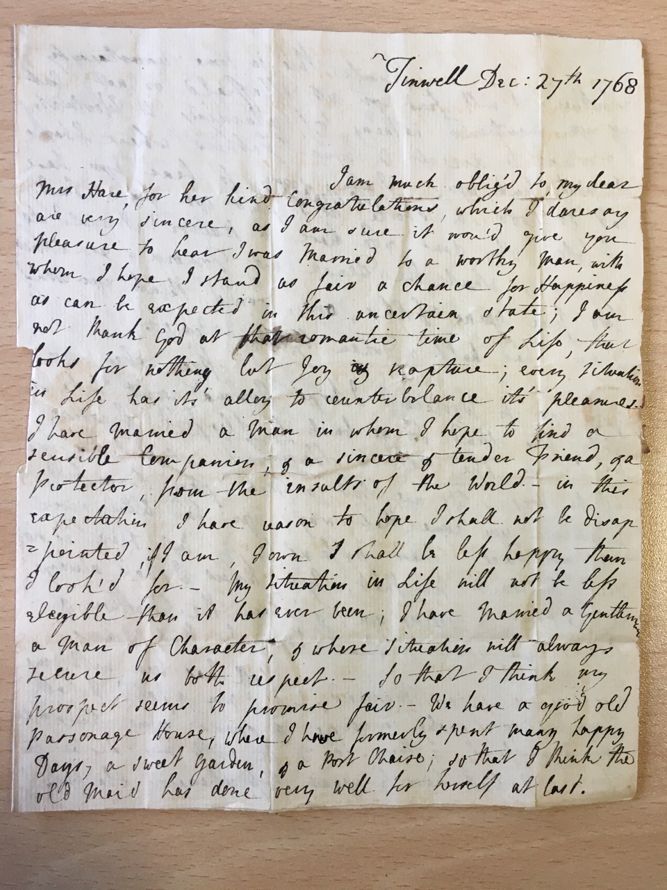 Tinwell Dec: 27th 1768
I am much oblig'd to my dear
Mrs Hare, for her kind Congratulations, which I daresay
are very sincere, as I am sure it wou'd give you
pleasure to hear I was Married to a worthy Man, with
whom I hope I stand as fair a chance for Happiness
as can be expected in this uncertain state; I am
not thank God at that romantic time of Life, that
looks for nothing but Joy & rapture; every situation
in Life has its alloy to counterbalance it's pleasures.
I have married a Man in whom I hope to find a
sensible Companion, & a sincere & tender Friend, & a
Protector, from the insults of the World – in this
expectation I have reason to hope I shall not be disap
=pointed, if I am, I own I shall be less happy than
I look'd for. – My situation in Life will not be less
elegible than it has ever been; I have Married a Gentleman
a Man of Character, & whose situation will always
secure us both respect. – So that I think my
prospect seems to promise fair. – We have a good old
Parsonage House, where I have formerly spent many happy
Days, a sweet Garden, & a Post Chaise; so that I think the
old Maid has done very well for herself at last.